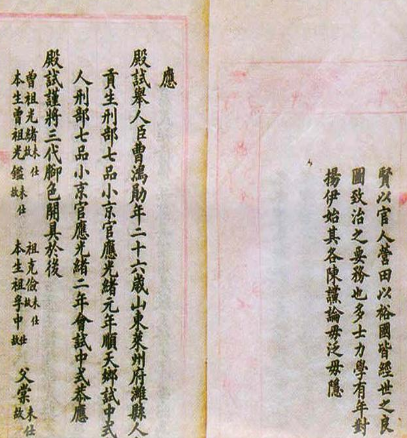 賢以官人營田以裕國皆經世之良
圖致治之要務也多士力學有年對
揚伊始其各陳讜論毋泛毋隱
應
殿試舉人臣曹鴻勛年二十六歲山東萊州府濰縣人
貢生刑部七品小京官應光緒元年順天鄉試中式
人刑部七品小京官應光緒二年會試中式恭應
殿試謹將三代腳色開具於後
曾祖光緒未仕故 祖克儉未仕故 父榮未仕故
本生曾祖光鑑未仕故 本生祖中